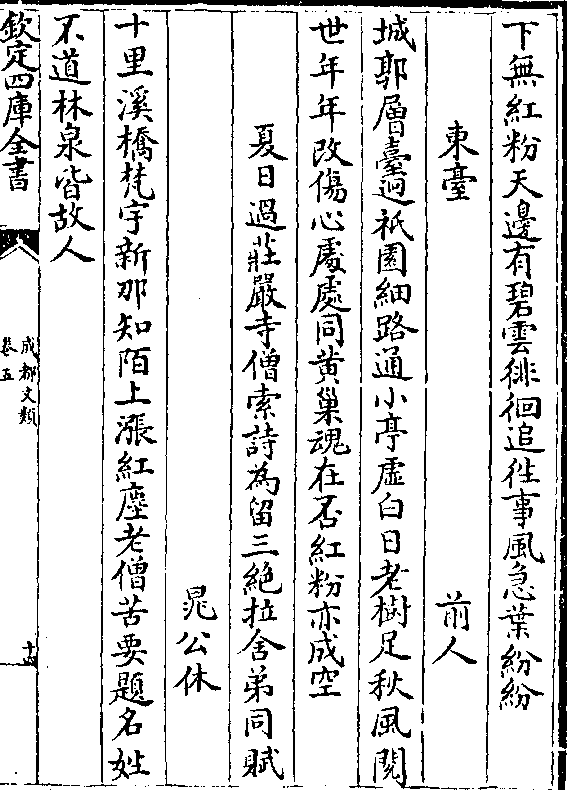 下無紅粉天邊有碧雲徘徊追往事風急葉紛紛
東臺　前人
城郭層臺迥祇園細路通小亭虛白日老樹足秋風閱
世年年改傷心處處同黄巢魂在否紅粉亦成空
夏日過莊嚴寺僧索詩為留三絶拉舍弟同賦
晁公休
十里溪橋梵宇新那知陌上漲紅塵老僧苦要題名姓
不道林泉皆故人
欽定四庫全書
成都文類
卷五
十四